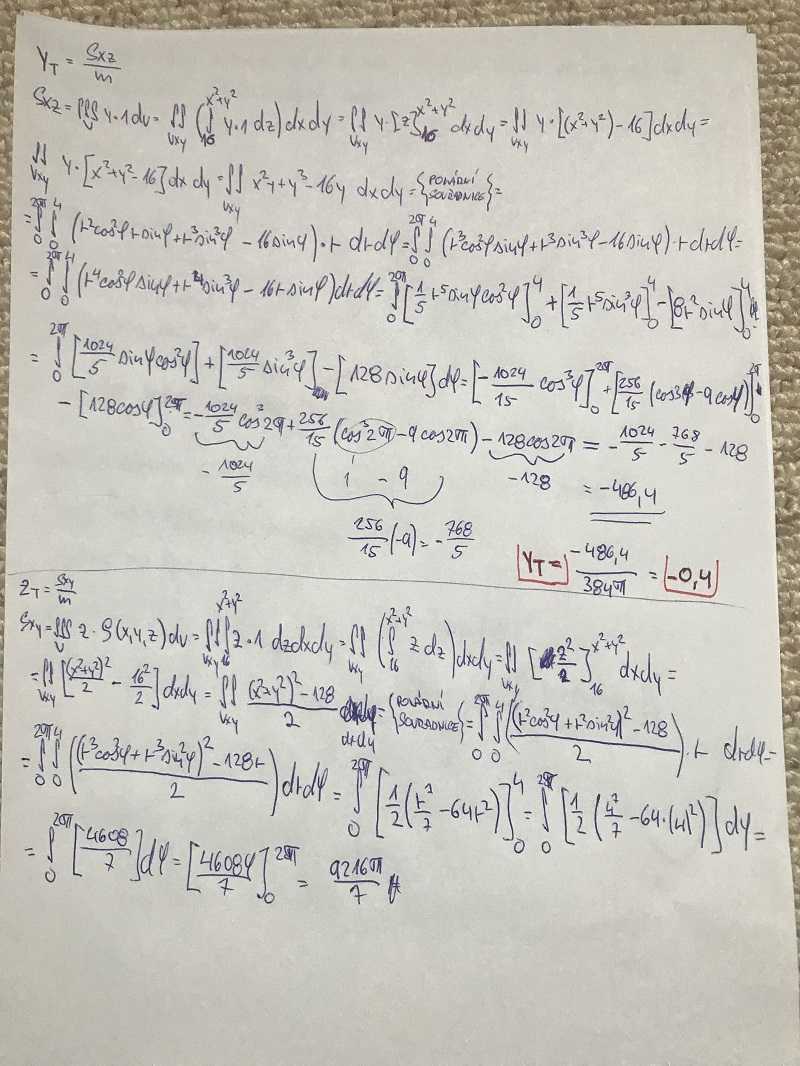 Y_T = Sxz/m
Sxz = ∭_V y·1 dv = ∬_Vxy (∫_16^{x²+y²} y·1 dz) dxdy = ∬_Vxy y·[z]_16^{x²+y²} dxdy = ∬_Vxy y·[(x²+y²)-16] dxdy =
∬_Vxy y·[x²+y²-16] dx dy = ∬_Vxy x²y+y³-16y dxdy = {POLÁRNÍ SOUŘADNICE} =
= ∫_0^{2π} ∫_0^4 (r²cos²φ r sinφ + r³sin³φ - 16 sinφ)·r drdφ = ∫_0^{2π} ∫_0^4 (r³cos²φ sinφ + r³sin³φ - 16 sinφ)·r drdφ =
= ∫_0^{2π} ∫_0^4 (r⁴cos²φ sinφ + r⁴sin³φ - 16r sinφ) drdφ = ∫_0^{2π} [1/5 r⁵ sinφ cos²φ]_0^4 + [1/5 r⁵ sin³φ]_0^4 - [8r² sinφ]_0^4
= ∫_0^{2π} [1024/5 sinφ cos²φ] + [1024/5 sin³φ] - [128 sinφ] dφ = [-1024/15 cos³φ]_0^{2π} + [256/15 (cos3φ - 9cosφ)]_0^{2π}
- [128cosφ]_0^{2π} = -1024/5 cos³2π + 256/15 (cos³2π - 9cos2π) - 128cos2π = -1024/5 - 768/5 - 128
-1024/5 1 - 9 -128 = -486,4
256/15 (-9) = -768/5
Y_T = -486,4/384π = -0,4
Z_T = Sxy/m
Sxy = ∭_V z·ρ(x,y,z) dv = ∬_Vxy ∫_16^{x²+y²} z·1 dzdxdy = ∬_Vxy (∫_16^{x²+y²} z dz) dxdy = ∬_Vxy [z²/2]_16^{x²+y²} dxdy =
= ∬_Vxy [(x²+y²)²/2 - 16²/2] dxdy = ∬_Vxy (x²+y²)²-128/2 drdy = {POLÁRNÍ SOUŘADNICE} = ∫_0^{2π} ∫_0^4 ((r²cos²φ + r²sin²φ)²-128/2)·r drdφ =
= ∫_0^{2π} ∫_0^4 ((r³cos²φ + r³sin²φ)² - 128r/2) drdφ = ∫_0^{2π} [1/2 (r⁷/7 - 64r²)]_0^4 = ∫_0^{2π} [1/2 (4⁷/7 - 64·(4)²)] dφ =
= ∫_0^{2π} [4608/7] dφ = [4608φ/7]_0^{2π} = 9216π/7